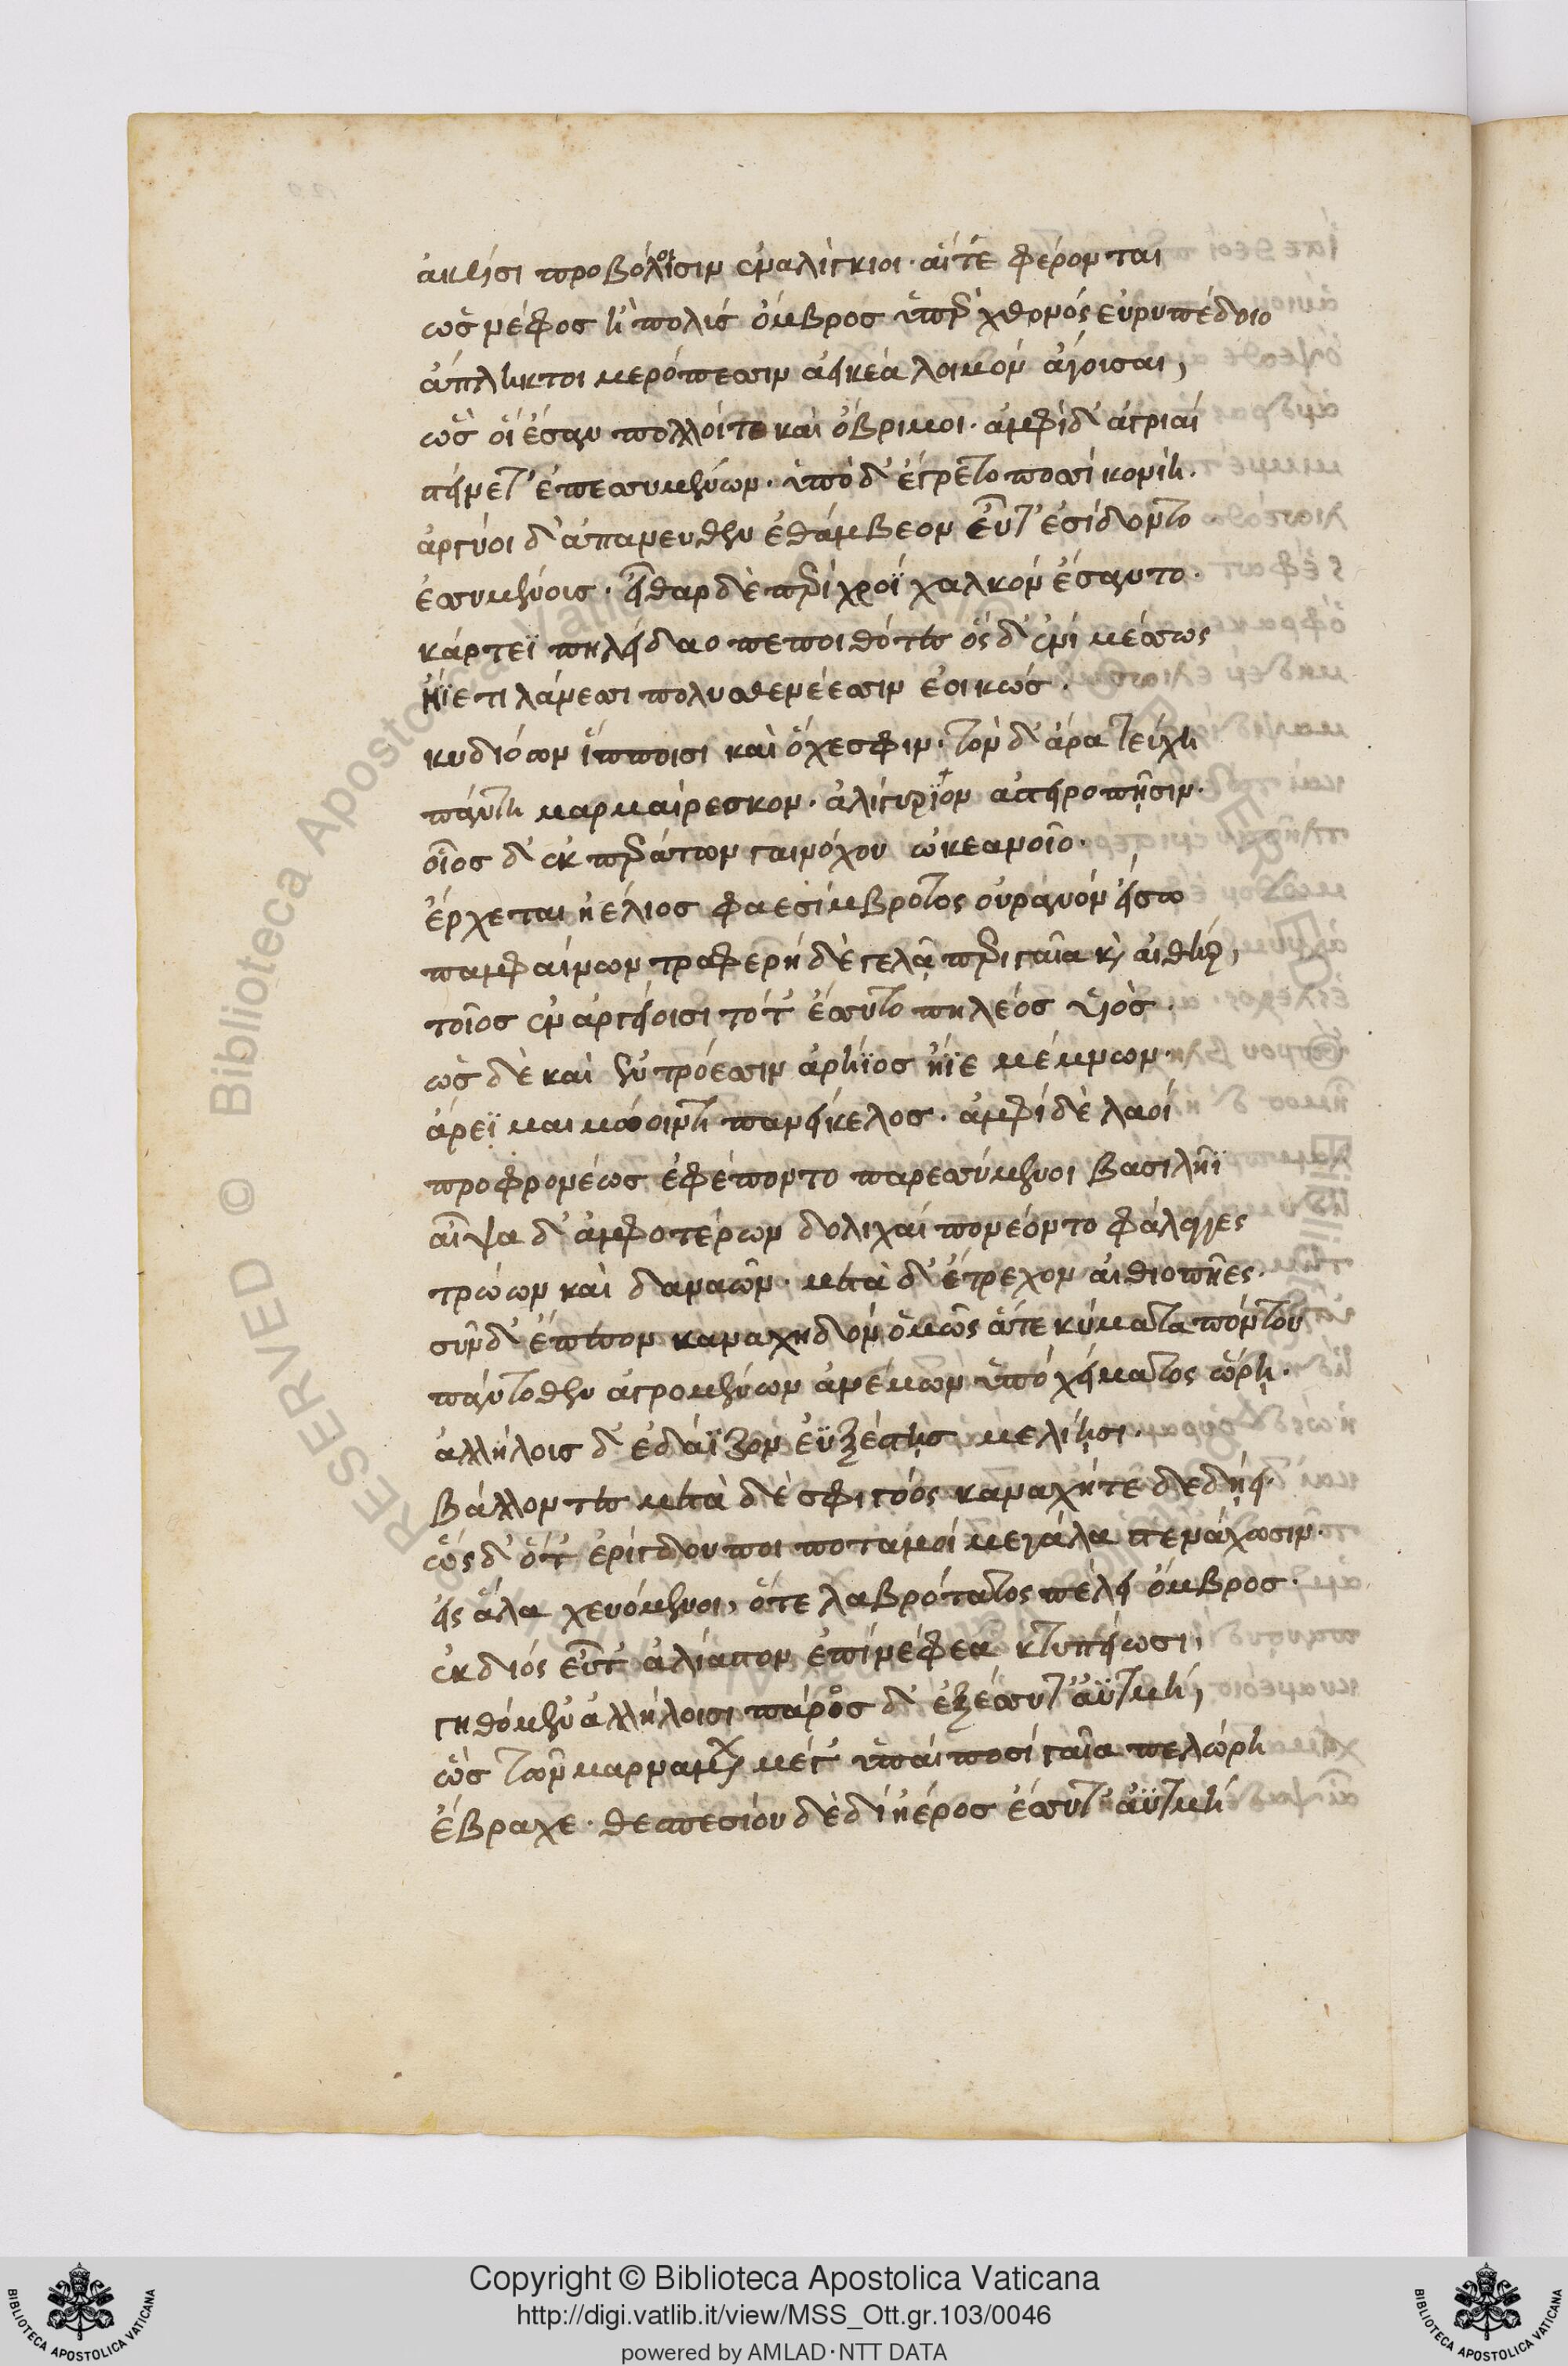 ἀκρίσι προβόλοισιν ἐναλίγκιοι· αἵ τε φέρονται
ὡς νέφος ἢ πολὺς ὄμβρος ὑπὲρ χθονός εὐρυπέδοιο
ἄπληκτοι μερόπεσσιν ἀεικέα λοιμὸν ἄγοισαι,
ὣς οἳ ἔσαν πολλοί τε καὶ ὄβριμοι· ἀμφὶ δ' ἄγριαί
στείνετ' ἐπεσσυμένων· ὑπὸ δ' ἔγρετο ποσσὶ κονίη·
ἀργεῖοι δ' ἀπάνευθεν ἐθάμβεον εὖτ' ἐσίδοντο
ἐσσυμένοις· εἶθαρ δὲ περὶ χροῒ χαλκὸν ἕσαντο·
κάρτεϊ πηλείδαο πεποιθότες ὃς δ' ἐνὶ μέσσοις
ἤϊε τιτάνεσσι πολυσθενέεσσιν ἐοικώς·
κυδιόων ἵπποισι καὶ ὄχεσφιν· τοῦ δ' ἄρα τεύχη
πάντη μαρμαίρεσκον· ἀλίγκιον ἀστεροπῇσιν·
οἷος δ' ἐκ περάτων γαιηόχου ὠκεανοῖο·
ἔρχεται ἠέλιος φαεσίμβροτος οὐρανόν εἴσω
παμφαίνων τραφερή δὲ γελᾷ περὶ γαῖα καὶ αἰθήρ,
τοῖος ἐν ἀργείοισι τότ' ἔσσυτο πηλέος υἱός·
ὣς δὲ καὶ ἐν τρώεσσιν ἀρήϊος ἤϊε μέμνων·
ἄρεϊ μαιμώοντι πανείκελος· ἀμφὶ δὲ λαοί
προφρονέως ἐφέποντο παρεσσύμενοι βασιλῆϊ
αἶψα δ' ἀμφοτέρων δολιχαί πονέοντο φάλαγγες
τρώων καὶ δαναῶν· μετὰ δ' ἔτρεχον αἰθιοπῆες·
σὺν δ' ἔπεσον καναχηδὸν ὁμῶς ἅτε κύματα πόντου
πάντοθεν ἀγρομένων ἀνέμων ὑπὸ χείματος ὥρῃ·
ἀλλήλοις δ' ἐδάϊζον ἐϋξέστῃς μελίῃσι·
βάλλοντες μετὰ δέ σφι γόος καναχή τε δεδήει·
ὡς δ' ὅτ' ἐρίγδουποι ποταμοί μεγάλα στενάχωσιν·
εἰς ἅλα χευόμενοι, ὅτε λαβρότατος πέλει ὄμβρος·
ἐκ διός εὖτ' ἀλίαστον ἐπὶ νέφεα κτυπέωσι,
γηθόμεν' ἀλλήλοισι πάρος δ' ἐξέσσυτ' ἀϋτμή,
ὣς τῶν μαρναμένων μέγ' ὑπαί ποσί γαῖα πελώρη
ἔβραχε· θεσπεσίου δὲ δι' ἠέρος ἔσσυτ' ἀϋτμή
Copyright © Biblioteca Apostolica Vaticana
http://digi.vatlib.it/view/MSS_Ott.gr.103/0046
powered by AMLAD·NTT DATA